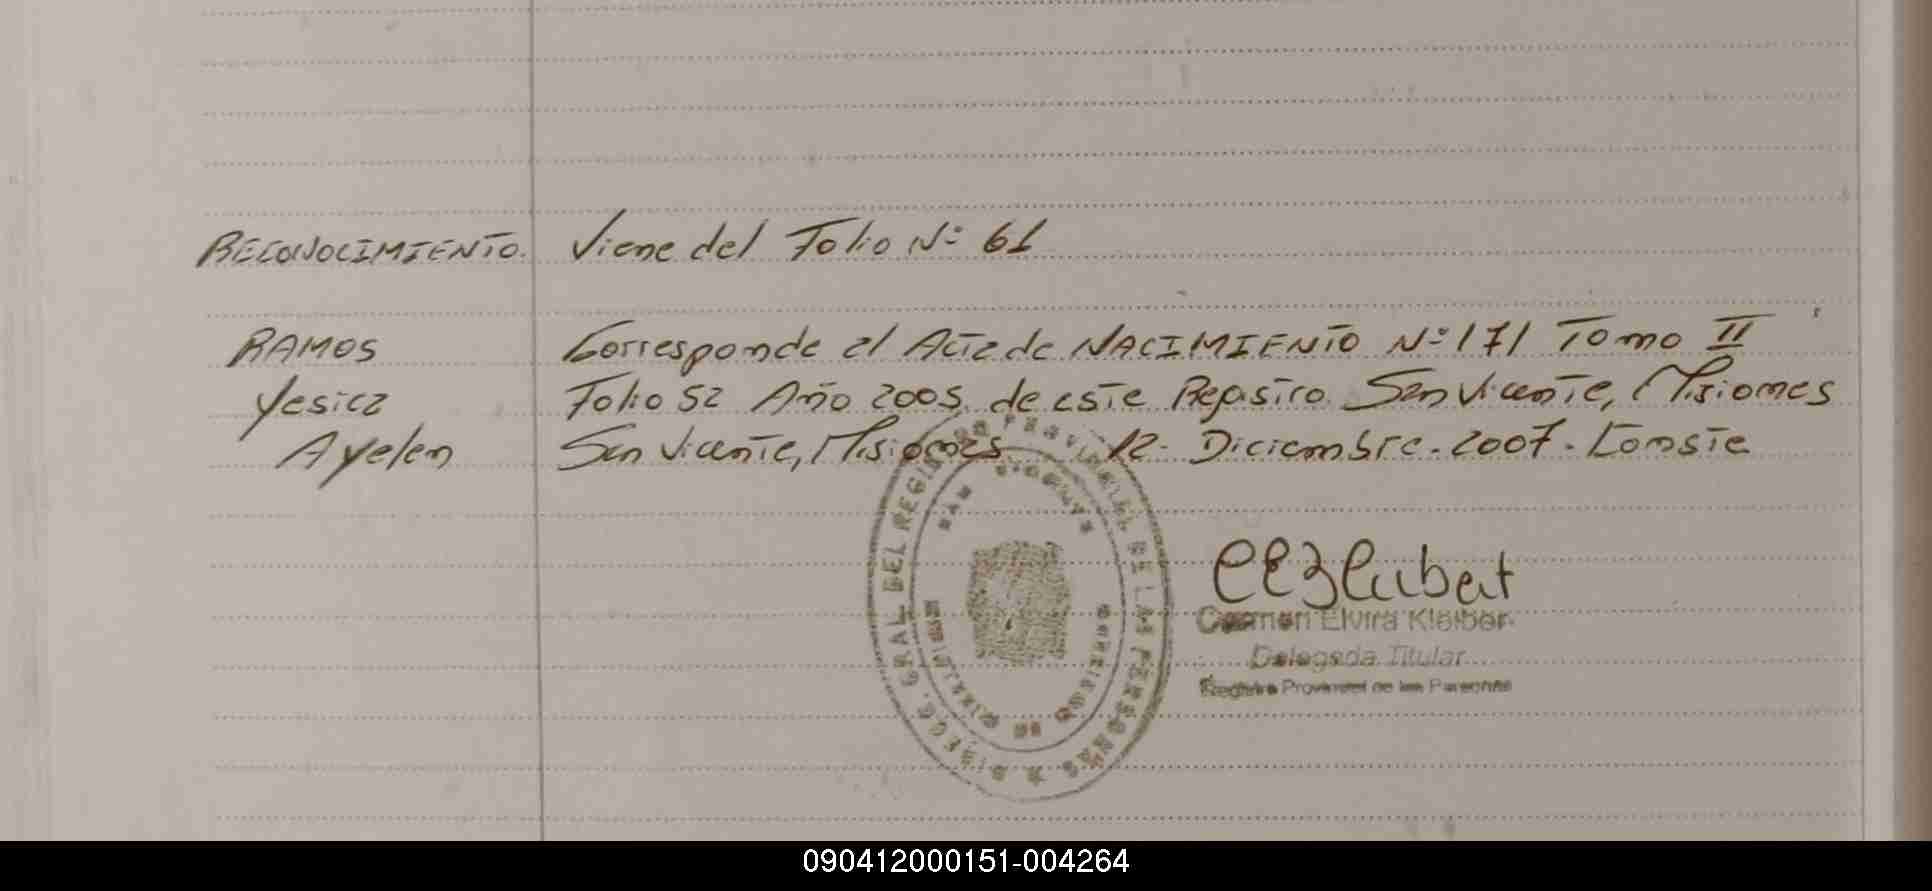 RECONOCIMIENTO. Viene del Folio Nº 61
RAMOS Corresponde al Acta de NACIMIENTO Nº 171 Tomo II
Yesica Folio 52 Año 2005, de este Registro. San Vicente, Misiones
Ayelen San Vicente, Misiones 12. Diciembre. 2007. Conste
DIRECC. GRAL. DEL REGISTRO PROVINCIAL DE LAS PERSONAS
SAN VICENTE
Carmen Elvira Kleiber
Delegada Titular
Registro Provincial de las Personas
090412000151-004264